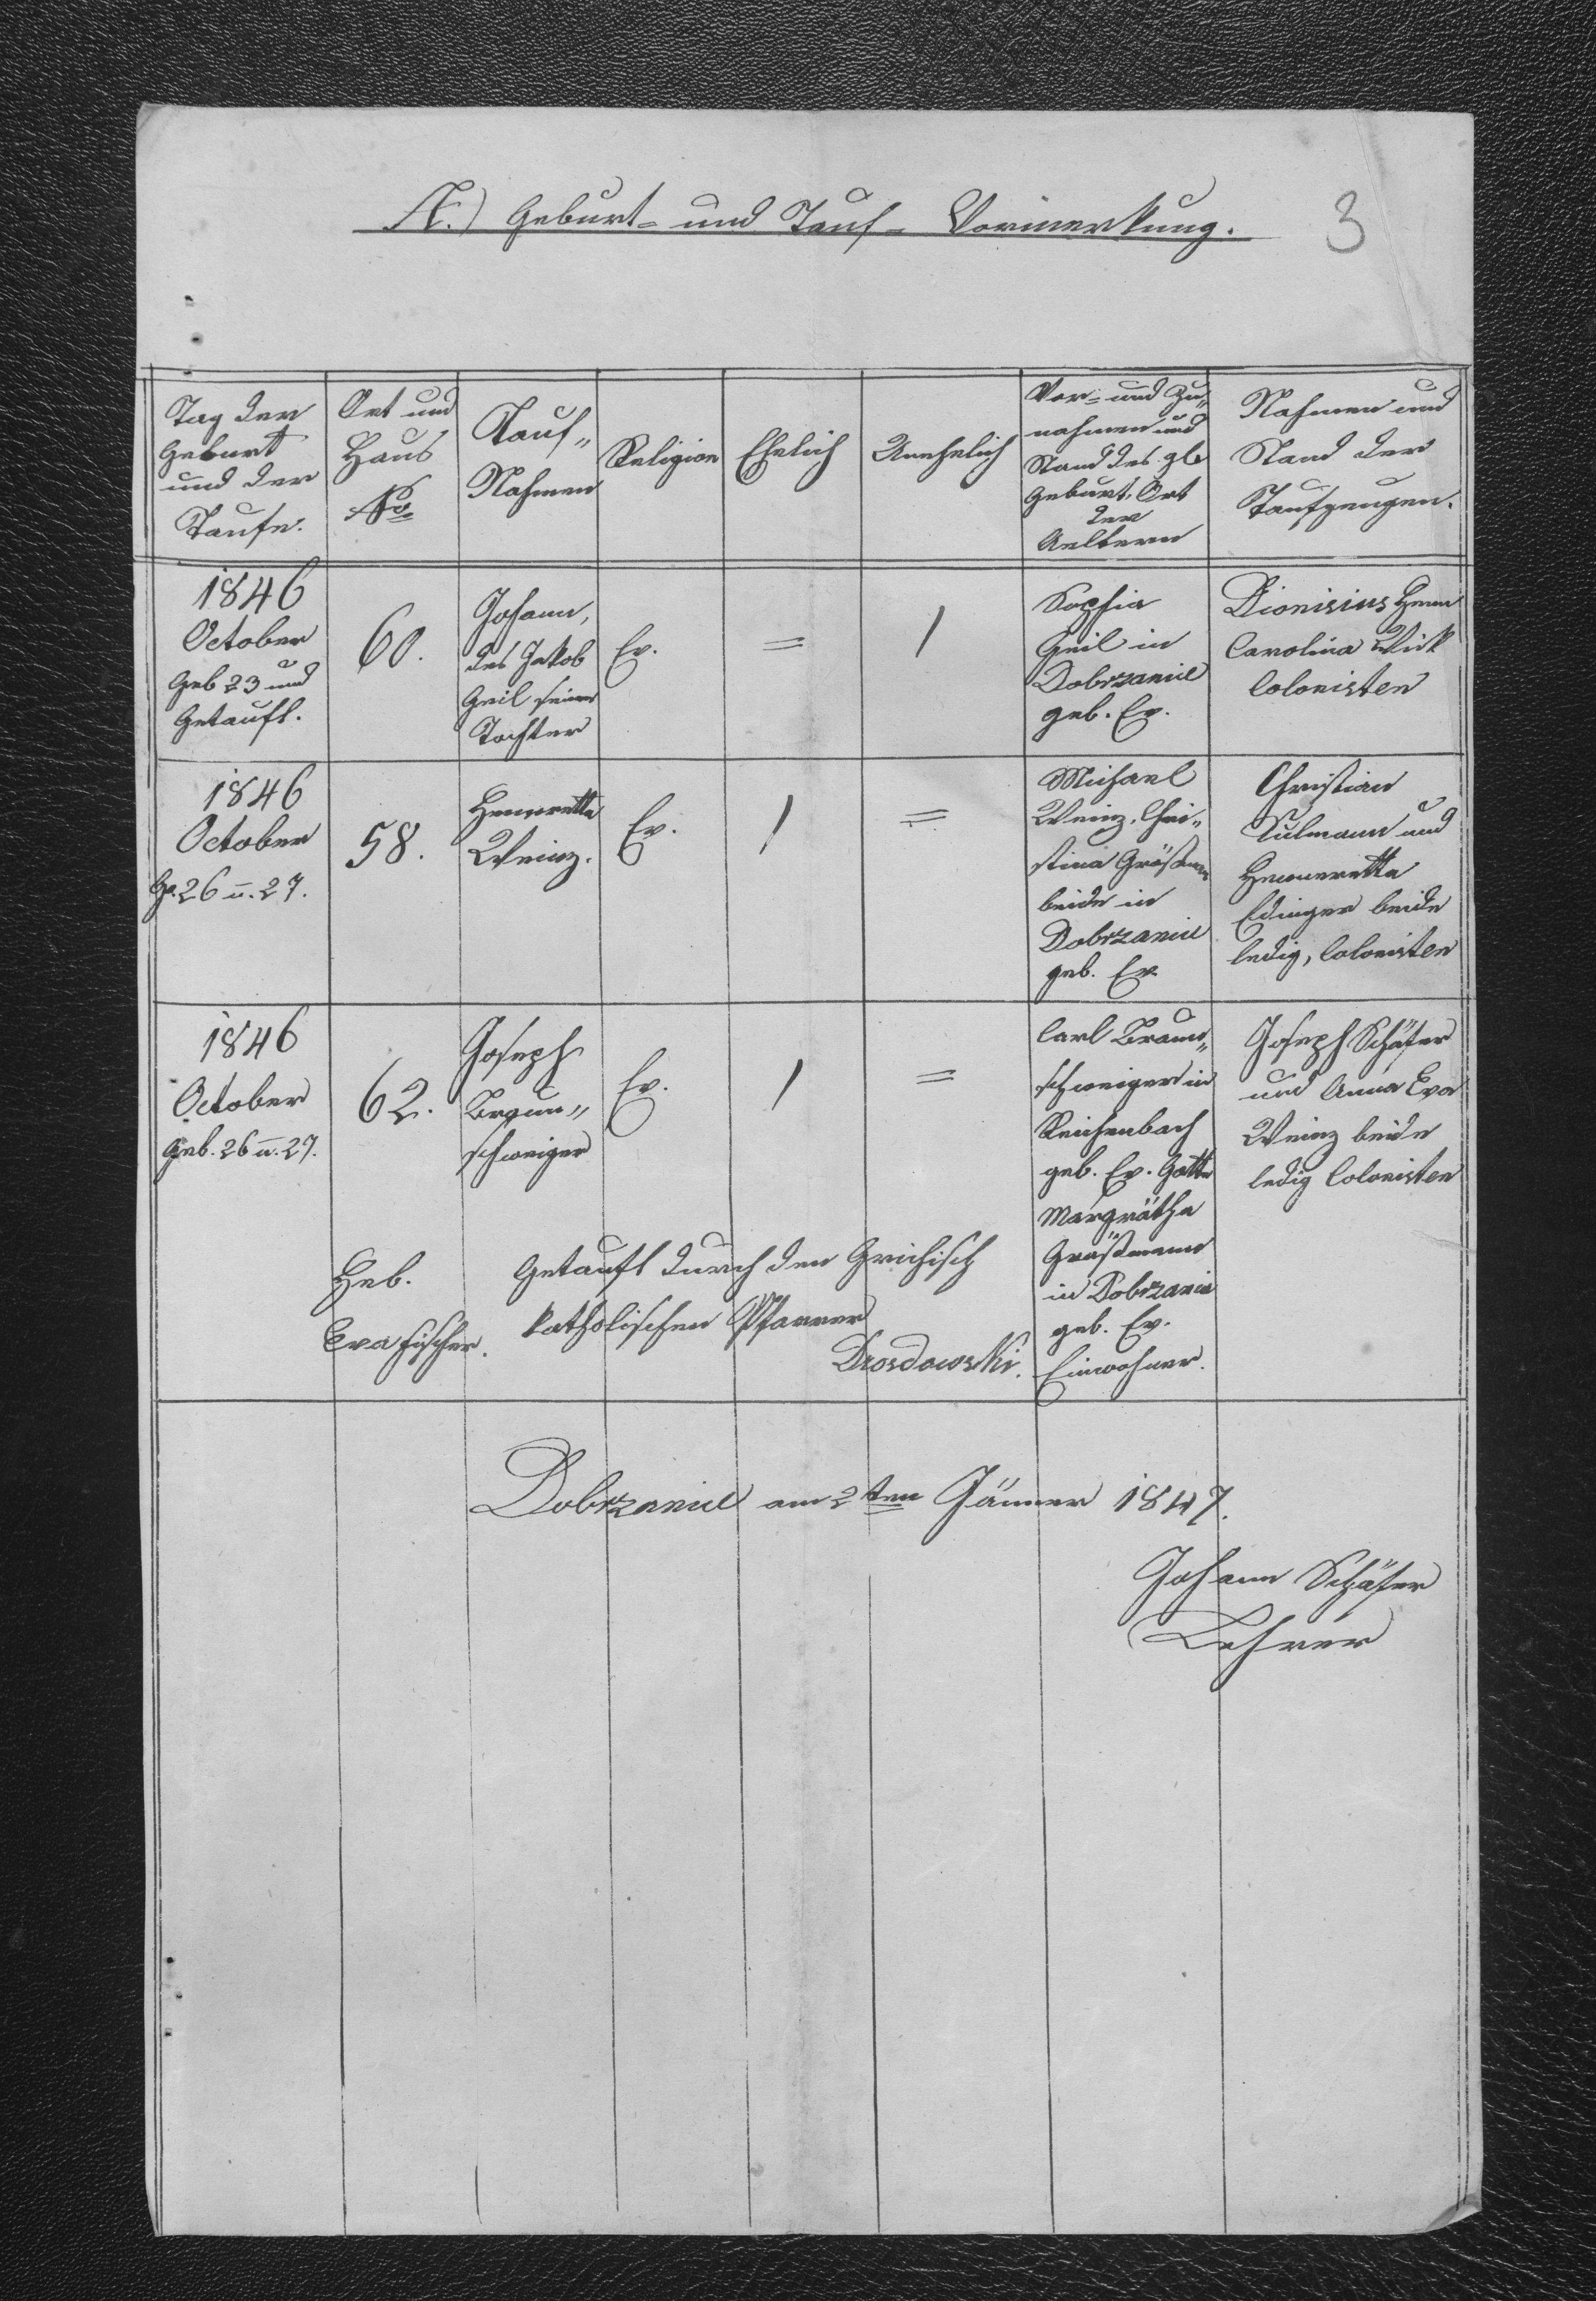 A.) Geburt- und Tauf- Vormerkung.
3
Tag der
Geburt
und der
Taufe.
Ort und
Haus
No
Tauf-
Nahmen
Religion
Ehelich
Unehelich
Vor- und Zu-
nahmen und
Stand des gl.
Geburt, Ort
der
Aeltern
Nahmen und
Stand der
Taufzeugen.
1846
October
Geb 23 und
Getauft.
60.
Johann,
des Jakob
Geil seiner
Tochter
Ev.
=
/
Sophia
Geil in
Dobrzanice
geb. Ev.
Dionisius
Carolina Wick
Colonisten
1846
October
Ge. 26 u. 27.
58.
Hennretta
Weinz.
Ev.
/
=
Michael
Weinz, Chri-
stina Gräßmann
beide in
Dobrzanice
geb. Ev.
Christian
Kulmann und
Henneretta
Edinger beide
ledig, Colonisten
1846
October
geb. 26 u. 27.
62.
Joseph
Braun-
schweiger
Ev.
/
=
Carl Braun-
schweiger in
Reichenbach
geb. Ev. Gattin
Margrätha
Gräßmann
in Dobrzanice
geb. Ev.
Einwohner.
Joseph Schäfer
und Anna Eva
Weinz beide
ledig Colonisten
Heb.
Eva Fischer.
Getauft durch den Grichisch
katholischen Pfarrer
Drosdowski.
Dobrzanice am 2ten Jänner 1847.
Johann Schäfer
Lehrer